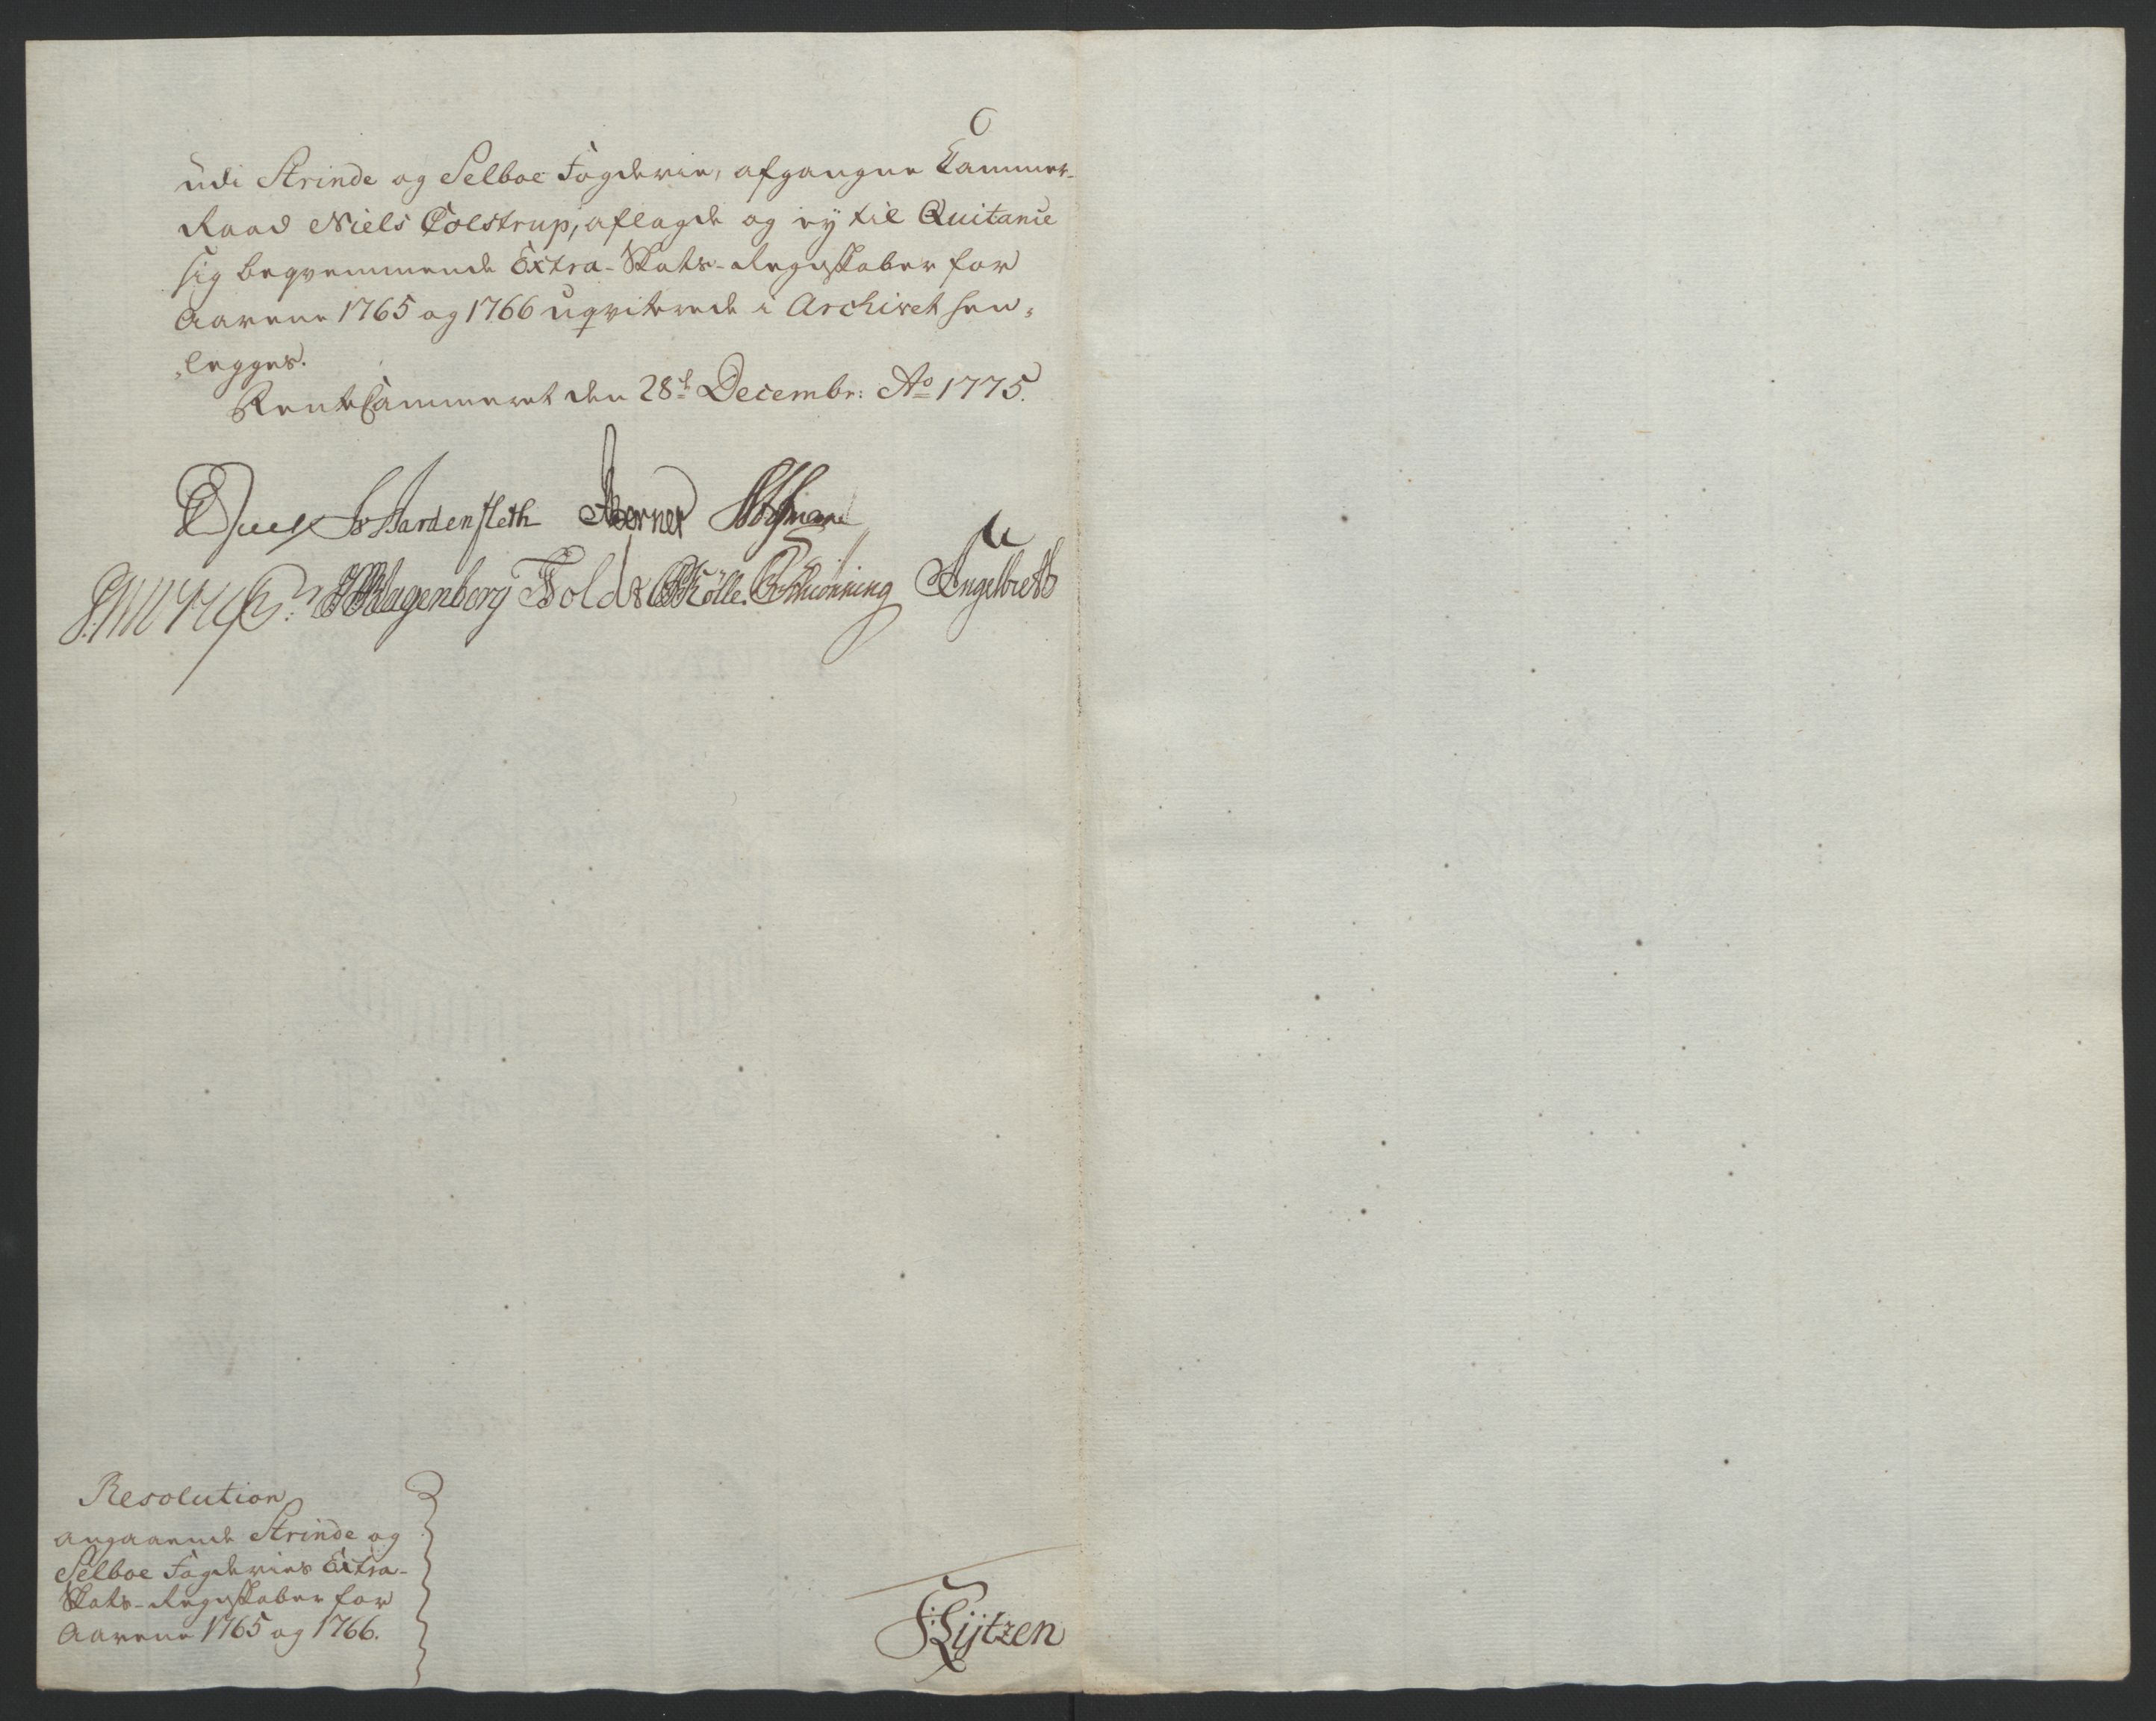 udi Strinde og Selboe Fogderie, afgangne Cammer-
Raad Niels Colstrup, aflagde og ej til Quitance
sig beqvemmende Extra-Skats-Regnskaber for
Aarene 1765 og 1766 uqviterede i Archivet hen-
-legges.
RenteCammeret den 28d Decembr: Ao 1775.
Juel Wardenfleth Berner
Klagenberg Fold Kölle. Schiönning Engelbreth
Resolution
angaaende Strinde og
Selboe Fogderies Extra-
Skats-Regnskaber for
Aarene 1765 og 1766.
Lÿtzen